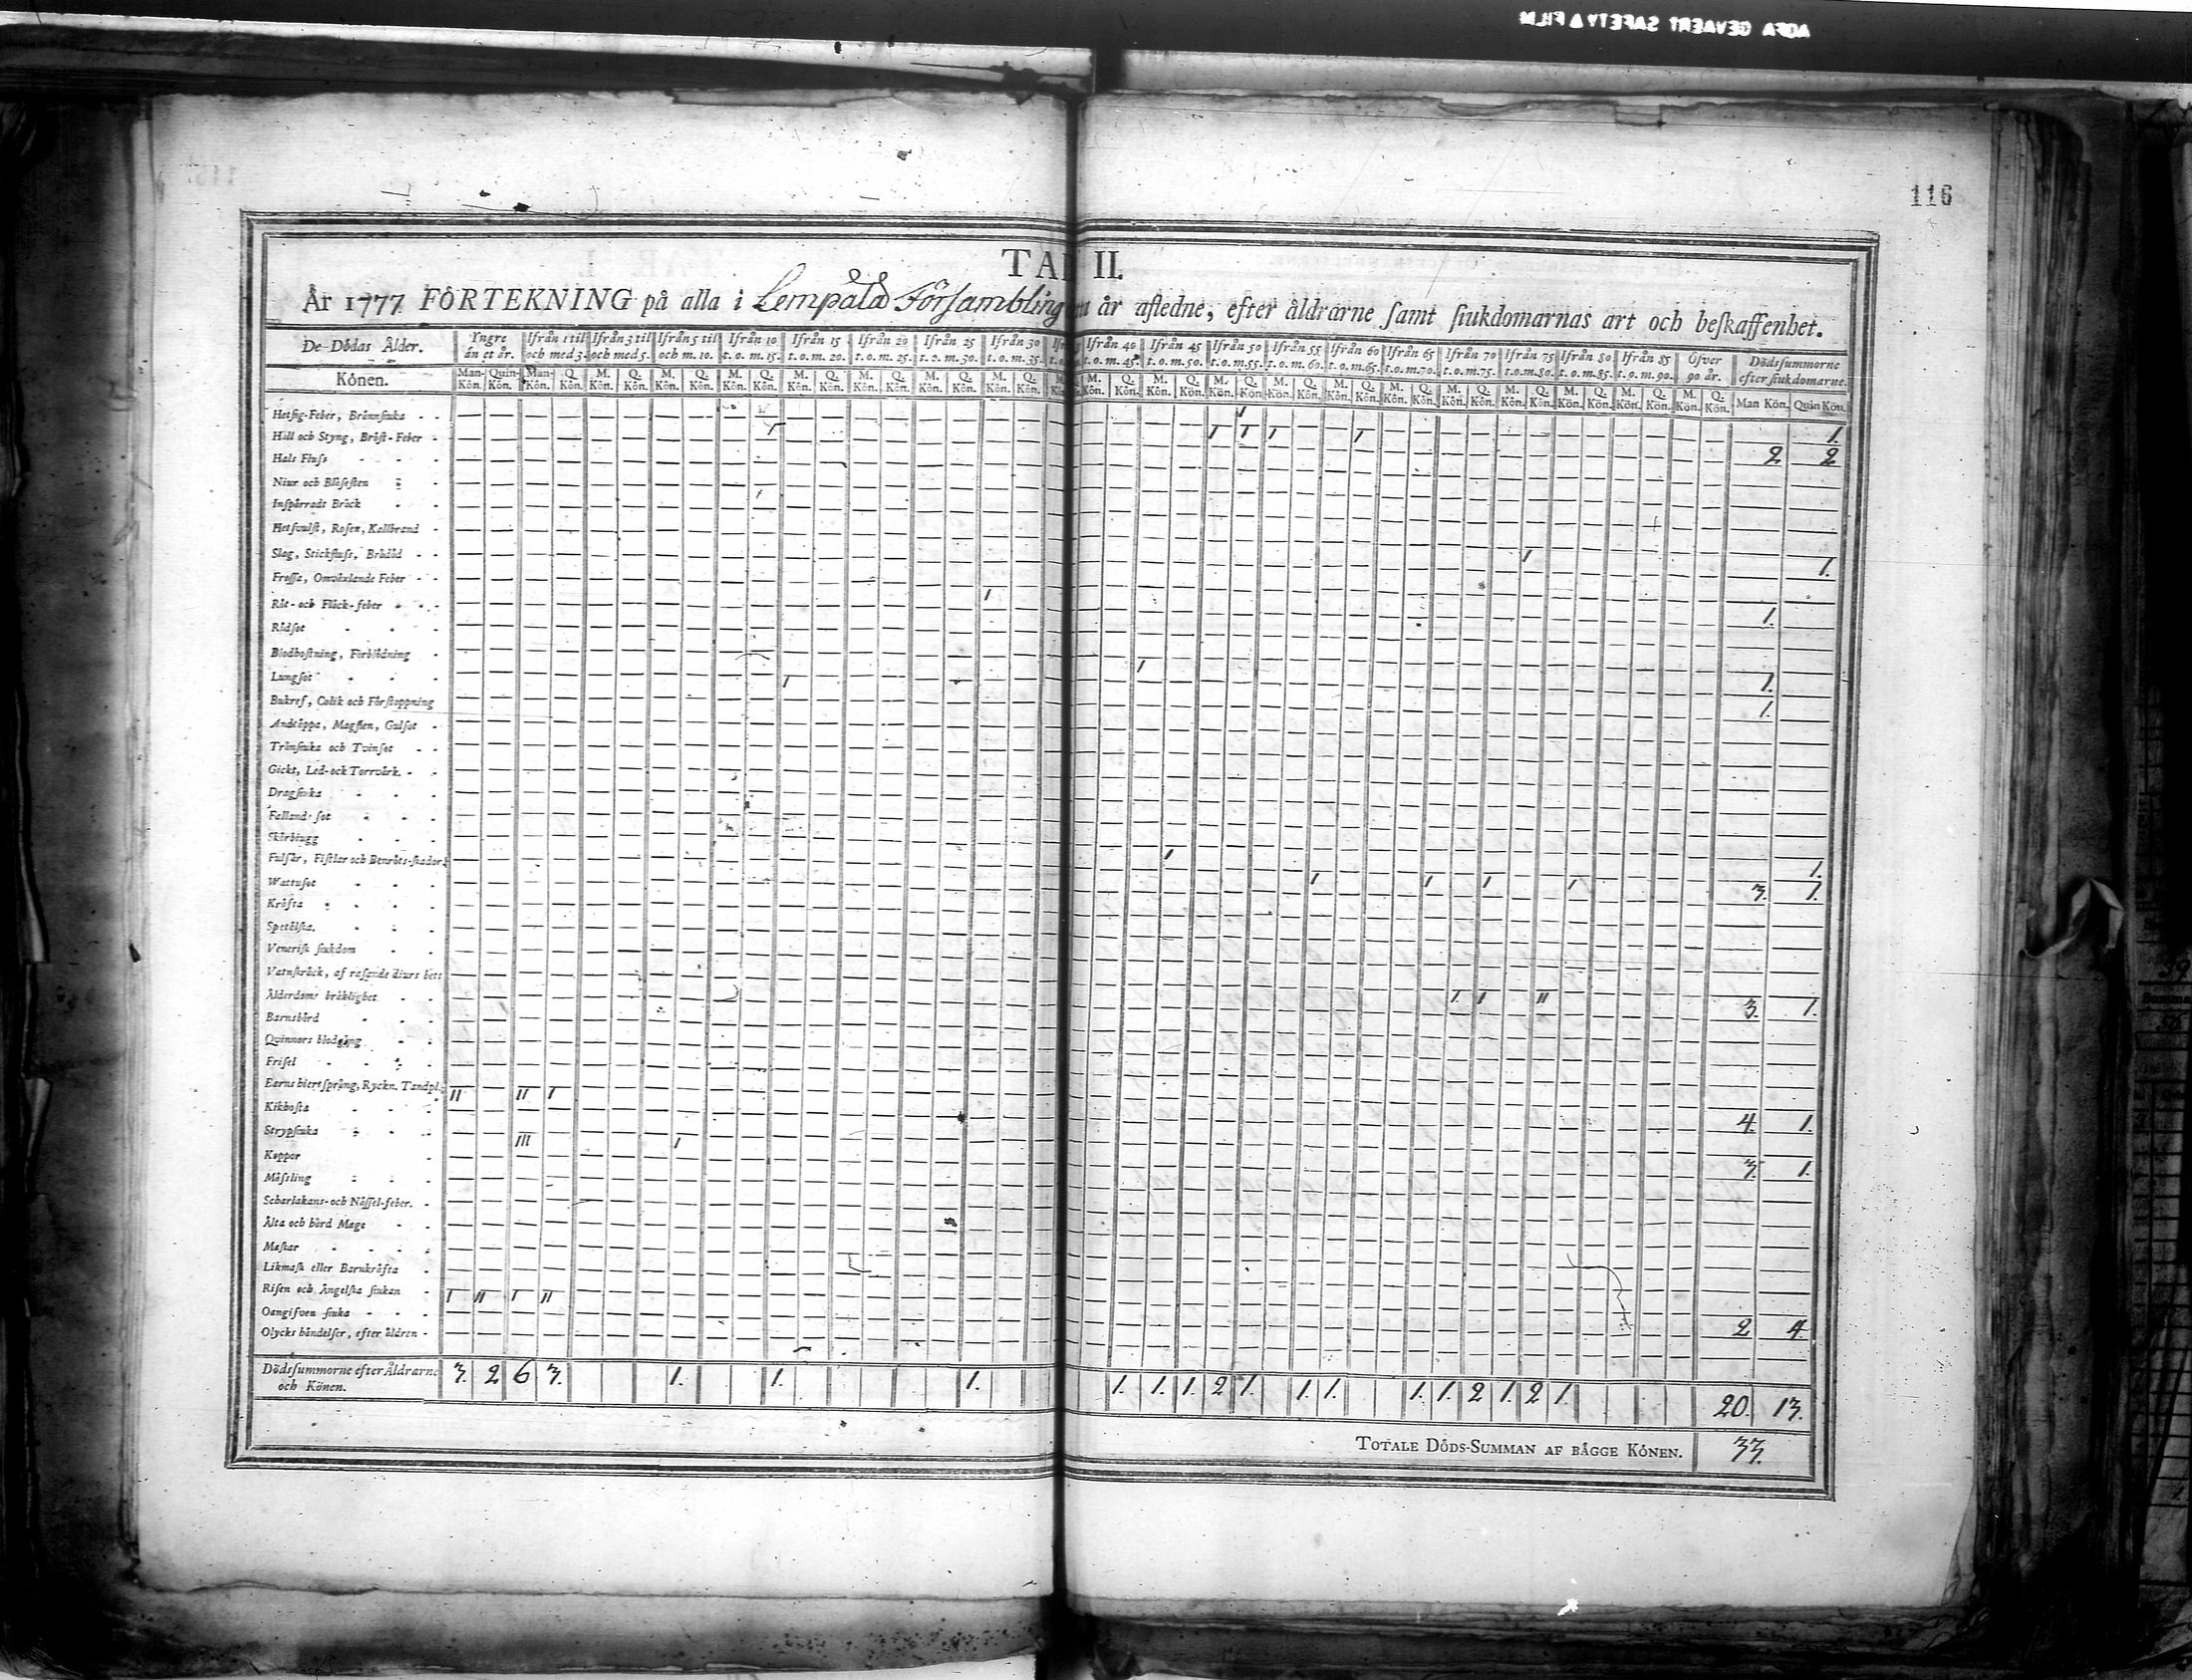 AGFA GEVAERT SAFETY FILM
116
TAB II.
År 1777 FÖRTEKNING på alla i Lempälä Försambling år afledne, efter åldrarne samt siukdomarnas art och beskaffenhet.
De Dödas Ålder. Yngre än et år. Ifrån 1 til och med 3. Ifrån 3 til och med 5. Ifrån 5 til och m. 10. Ifrån 10 t. o. m. 15. Ifrån 15 t. o. m. 20. Ifrån 20 t. o. m. 25. Ifrån 25 t. o. m. 30. Ifrån 30 t. o. m. 35. Ifrån 40 t. o. m. 45. Ifrån 45 t. o. m. 50. Ifrån 50 t. o. m. 55. Ifrån 55 t. o. m. 60. Ifrån 60 t. o. m. 65. Ifrån 65 t. o. m. 70. Ifrån 70 t. o. m. 75. Ifrån 75 t. o. m. 80. Ifrån 80 t. o. m. 85. Ifrån 85 t. o. m. 90. Öfver 90 år. Dödssummorne efter siukdomarne.
Könen. Man-Kön. Quin-Kön. Man-Kön. Q. Kön. M. Kön. Q. Kön. M. Kön. Q. Kön. M. Kön. Q. Kön. M. Kön. Q. Kön. M. Kön. Q. Kön. M. Kön. Q. Kön. M. Kön. Q. Kön. M. Kön. Q. Kön. M. Kön. Q. Kön. M. Kön. Q. Kön. M. Kön. Q. Kön. M. Kön. Q. Kön. M. Kön. Q. Kön. M. Kön. Q. Kön. M. Kön. Q. Kön. M. Kön. Q. Kön. M. Kön. Q. Kön. M. Kön. Q. Kön. Man Kön. Quin Kön.
Hetsig-Feber, Brännsiuka 1 1.
Håll och Styng, Bröst-Feber 1 1 1 1 2 2
Hals Fluss
Niur och Blåsesten
Inspärradt Bråck
Hetsvulst, Rosen, Kallbrand
Slag, Stickfluss, Brådöd 1 1.
Frossa, Omväxlande Feber
Röt- och Fläck-feber 1 1.
Rödsot
Blodhostning, Förblödning
Lungsot 1 1 1.
Bukref, Colik och Förstoppning 1.
Andtäppa, Magplen, Gulsot
Trånsiuka och Tvinsot
Gickt, Led- och Torrvärk.
Dragsiuka
Fallande sot
Skörbiugg
Fulsår, Fistlar och Benröts-skador 1 1.
Wattusot 1 1 1 1 3. 1.
Kräfta
Spetälska.
Venerisk siukdom
Vatnskräck, af rasande diurs bett
Ålderdoms bräklighet 1. 1 11 3. 1.
Barnsbörd
Quinnors blodgång
Frisel
Barns hiertsprång, Ryckn. Tandpl. 11 11 1 4. 1.
Kikhosta
Strypsiuka 111 1 3. 1.
Koppor
Mässling
Scharlakans- och Nässel-feber.
Älta och hård Mage
Maskar
Likmask eller Barnkräfta
Risen och Ängelska siukan 1 11 1 11
Oangifven siuka 2 4.
Olycks händelser, efter åldren
Dödssummorne efter Åldrarne och Könen. 3. 2 6 3. 1. 1. 1. 1. 1. 1. 2 1. 1. 1. 1. 1. 2 1. 2 1. 20. 13.
TOTALE DÖDS-SUMMAN AF BÄGGE KÖNEN. 33.